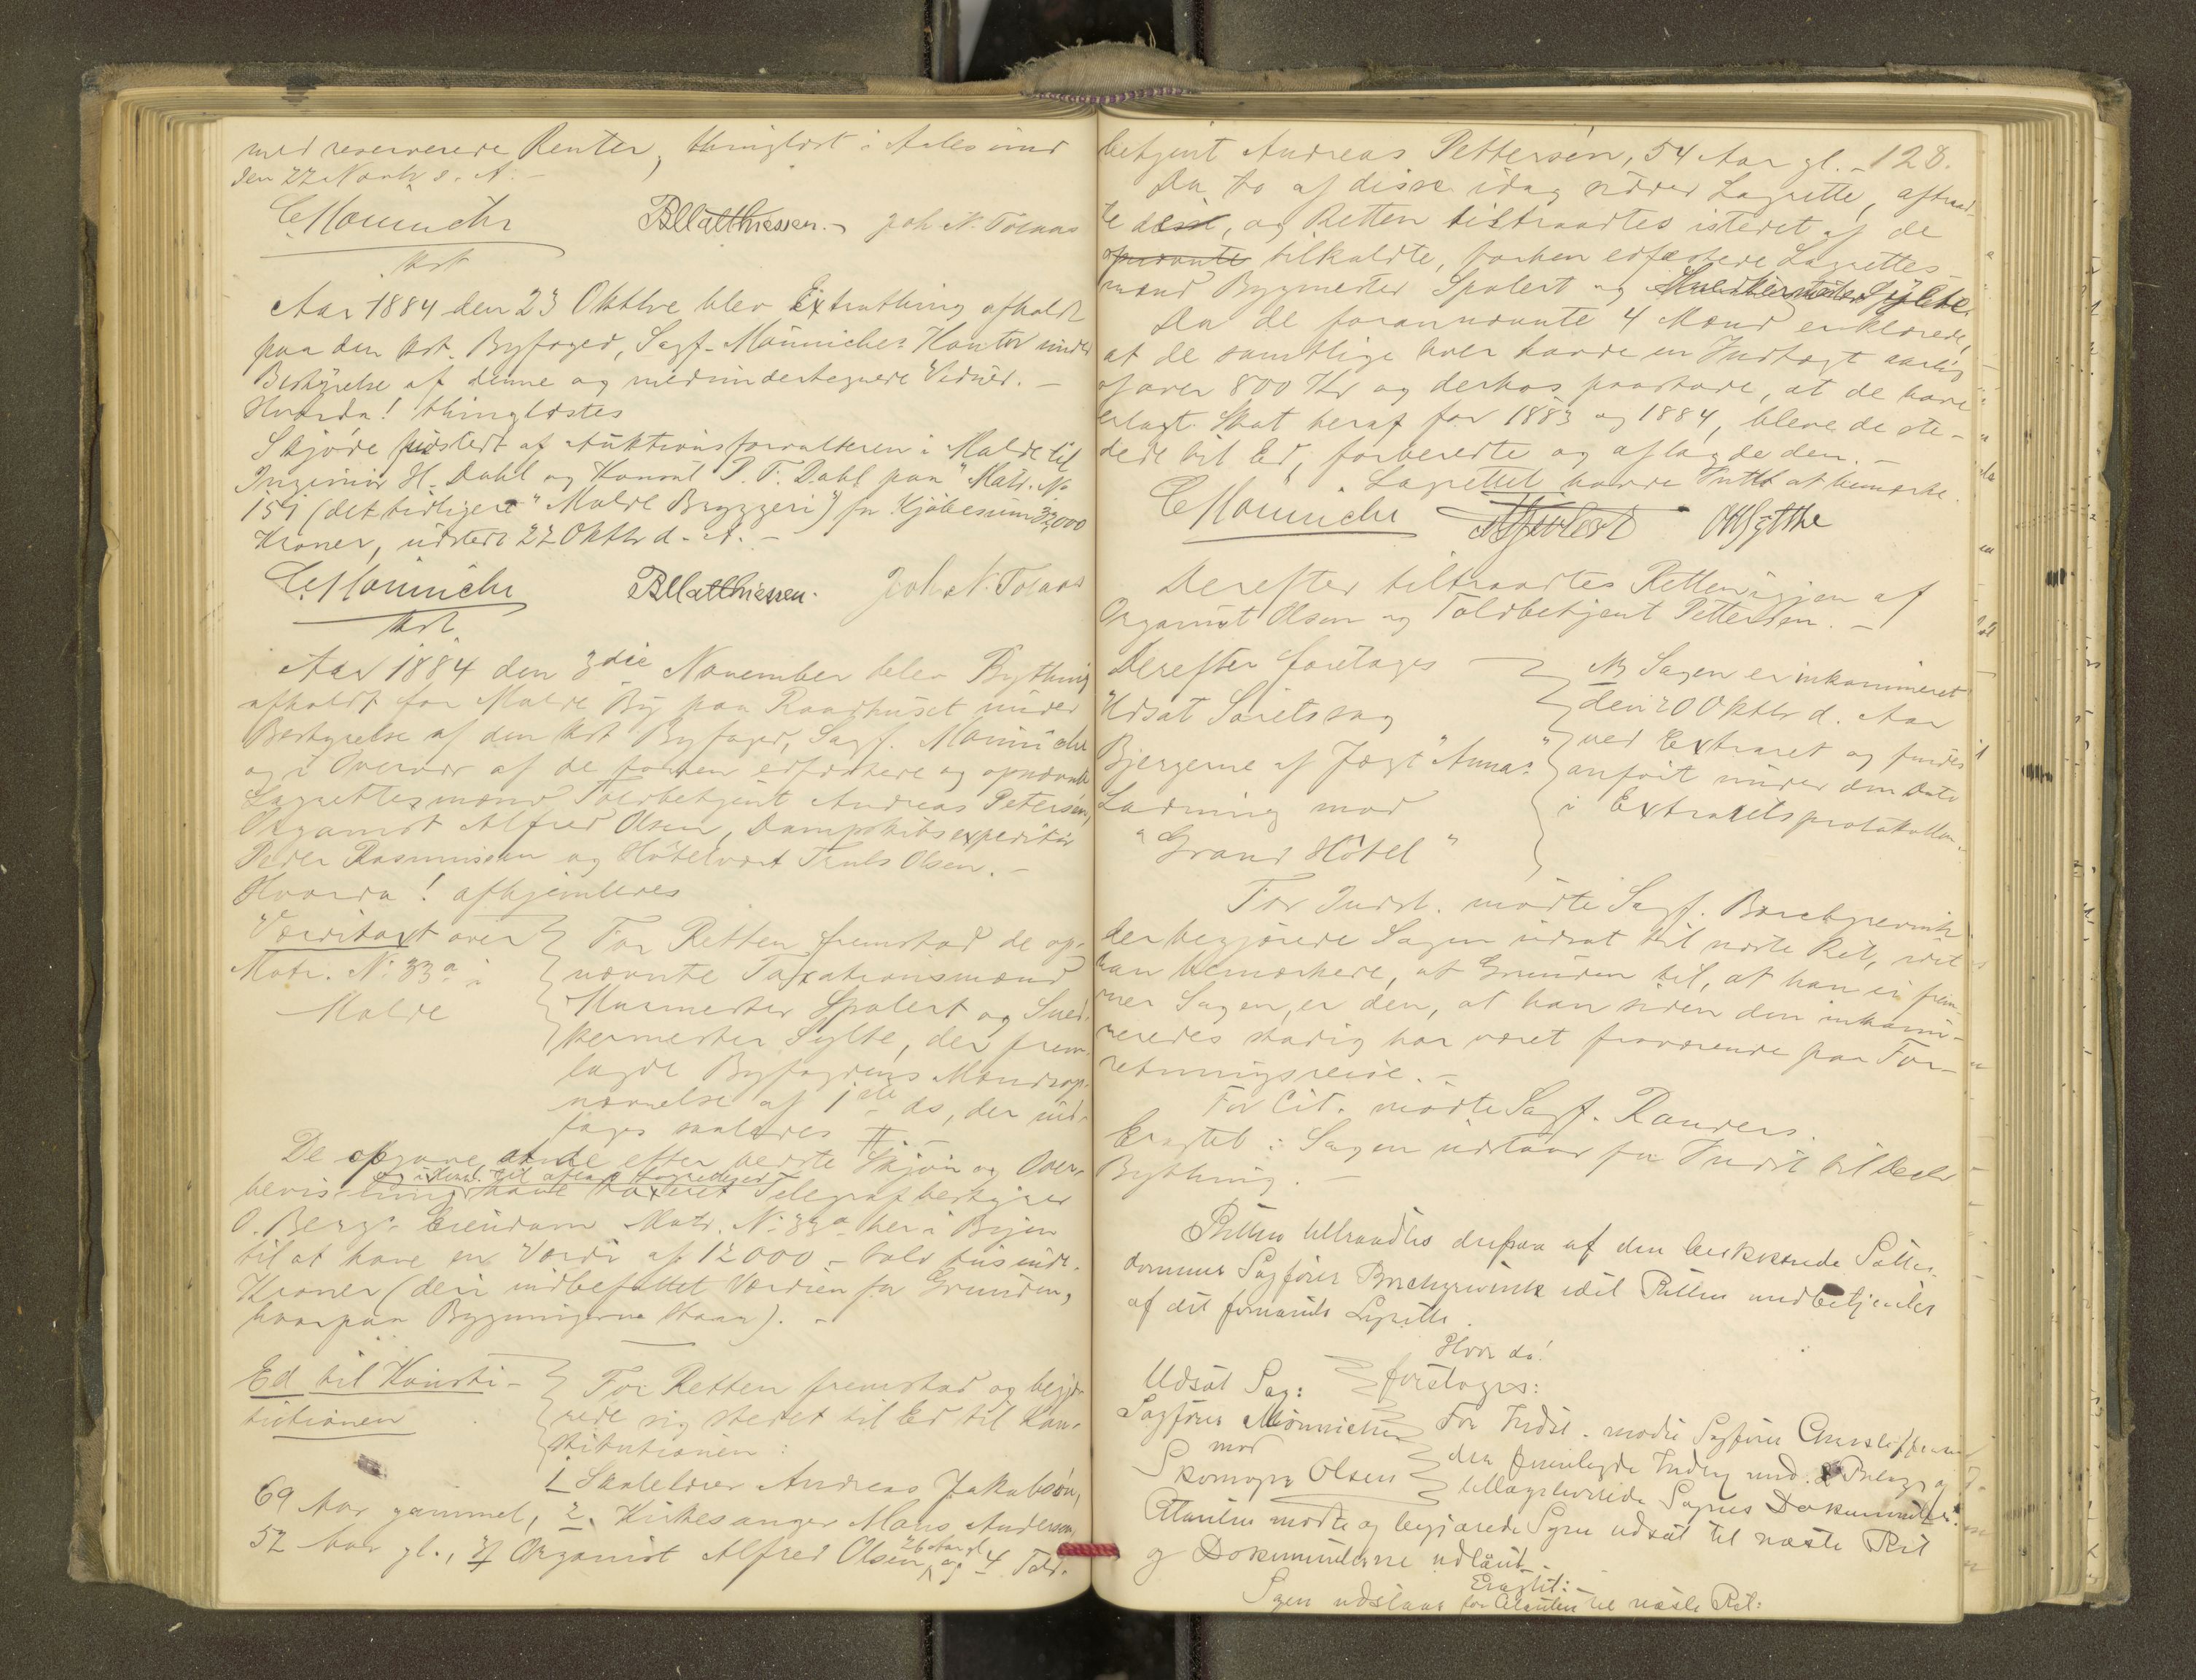 med reserverede Renter, thinglæst i Aalesund
den 22 Novbr s. A. -
C. Mönniche BMatthiessen. - Joh. N. Tøsaas
kst
Aar 1884 den 23 Oktbre blev Extrathing afholdt
paa den kst. Byfoged, Sagf. Mönniches Kontor under
Bestyrelse af denne og medundertegnede Vidner. -
Hvorda! thinglæstes
Skjøde udstedt af Auktionsforvalteren i Molde til
Ingeniør H. Dahl og Konsul P. F. Dahl paa "Matr. No
151 (det tidligere "Molde Bryggeri") for Kjøbesum 32,000
Kroner, udstedt 22 Oktbr d. A. -
C. Mönniche BMatthiessen. Joh. N. Tøsaas
kst.
Aar 1884 den 3die November blev Bything
afholdt for Molde By paa Raadhuset under
Bestyrelse af den kst Byfoged, Sagf. Mönniche
og i Overvær af de forhen edfæstede og opnævnte
Lagrettesmænd Toldbetjent Andreas Petersen,
Organist Alfred Olsen, Dampskibsexpeditør
Peder Rasmussen og Hôtelvært Truls Olsen. -
Hvorda! afhjemledes
Værditaxt over
Matr. No 33a i
Molde
For Retten fremstod de op-
nævnte Taxationsmænd
Murmester Spolert og Sned-
kermester Sylte, der frem-
lagde Byfogdens Mandsop-
nævnelse af 1ste ds, der ind-
tages saalydes #
De opgave at de efter bedste Skjøn og Over-
bevisning have taxeret Telegrafbestyrer
O. Bergs Eiendom Matr. No 33a her i Byen
til at have en Værdi af 12000 - tolv tusinde
Kroner (deri indbefattet Værdien for Grunden,
hvorpaa Bygningerne staar). -
Ed til Konsti-
tutionen
For Retten fremstod og begjæ-
rede sig stedet til Ed til Kon-
stitutionen:
1 Skolelærer Andreas Jakobsen,
69 Aar gammel, 2. Kirkesanger Mons Andersen,
52 Aar gl., 3 Organist Alfred Olsen, 26 Aar gl og 4 Told-
betjent Andreas Pettersen, 54 Aar gl. - 128.
Da to af disse idag sidder Lagrette, aftraad-
te disse, og Retten tiltraadtes istedet af de
opnævnte tilkaldte, forhen edfæstede Lagrettes-
mænd Bygmester Spolert og Snedkermester Sylte.
Da de forannævnte 4 Mænd erklærede,
at de samtlige hver havde en Indtægt aarlig
af over 800 Kr og derhos paastode, at de have
erlagt Skat heraf for 1883 og 1884, bleve de ste-
dede til Ed, forberedte og aflagde den. -
Lagrettet havde Intet at bemærke.
C. Mönniche Spolert OHSylthe
Derefter tiltraadtes Retten igjen af
Organist Olsen og Toldbetjent Pettersen. -
Derefter foretoges
Udsat Søretssag
Bjergerne af Jagt "Anna"s
Ladning mod
"Grand Hôtel"
NB Sagen er inkamineret
den 20 Oktbr d. Aar
ved Extraret og findes
anført under den Dato
i Extraretsprotokollen.
For Indst. mødte Sagf. Borchgrevink
der begjærede Sagen udsat til næste Ret, idet
han bemærkede, at Grunden til, at han ei frem-
mer Sagen, er den, at han siden den inkami-
neredes stadig har været fraværende paa For-
retningsreise. -
For Cit. mødte Sagf. Randers.
Eragtet: Sagen udstaar for Indst til Decbr
Bything. -
Retten tiltraadtes derpaa af den beskikkede Sætte-
dommer Sagfører Borchgrevink idet Retten medbetjentes
af det fornævnte Lagrette.
Hvor da!
foretoges:
Udsat Sag:
Sagfører Mönniche
mod
Skomager Olsen
For Indst. mødte Sagfører
der fremlagde Indlæg med Bilag og
tillagsleverede Sagens Dokumenter.
Citanten mødte og begjærede Sagen udsat til næste Ret
og Dokumenterne udlaant. -
Eragtet: -
Sagen udstaar for Citanten til næste Ret: